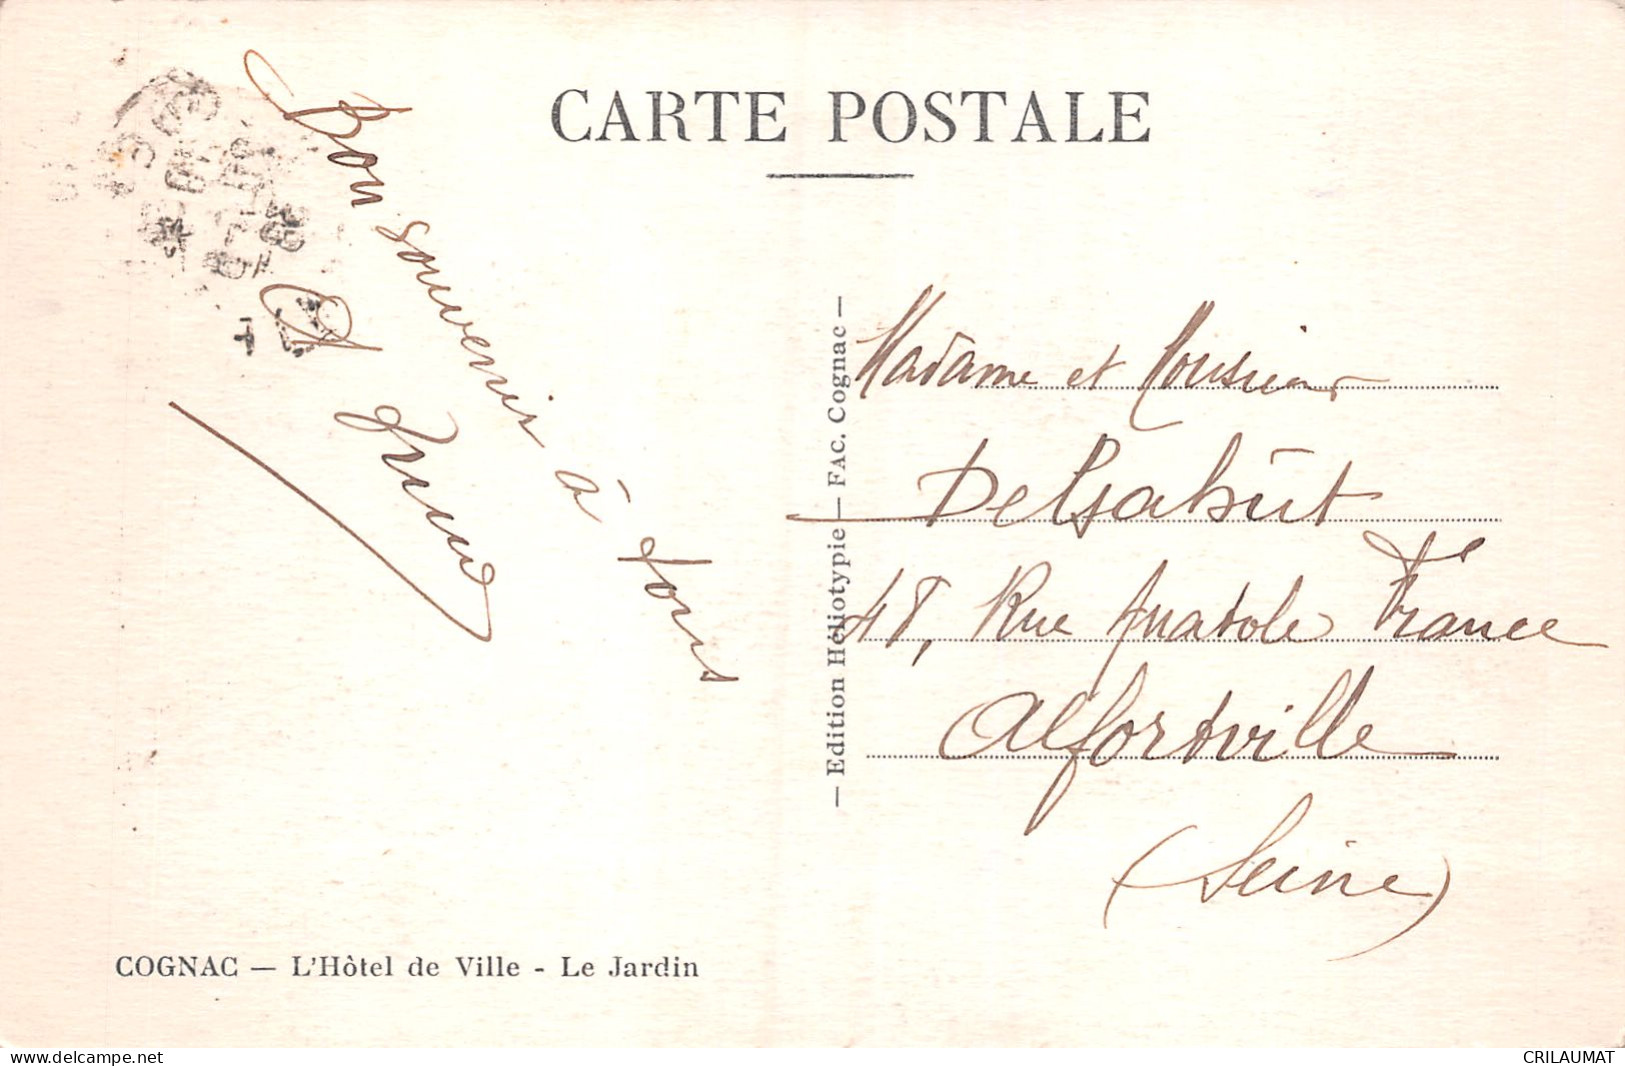 CARTE POSTALE
Bon souvenir à tous
Madame et Monsieur
Delsahut
48, Rue Anatole France
Alfortville
(Seine)
— Edition Héliotypie — FAC. Cognac —
COGNAC — L'Hôtel de Ville - Le Jardin
www.delcampe.net
CRILAUMAT